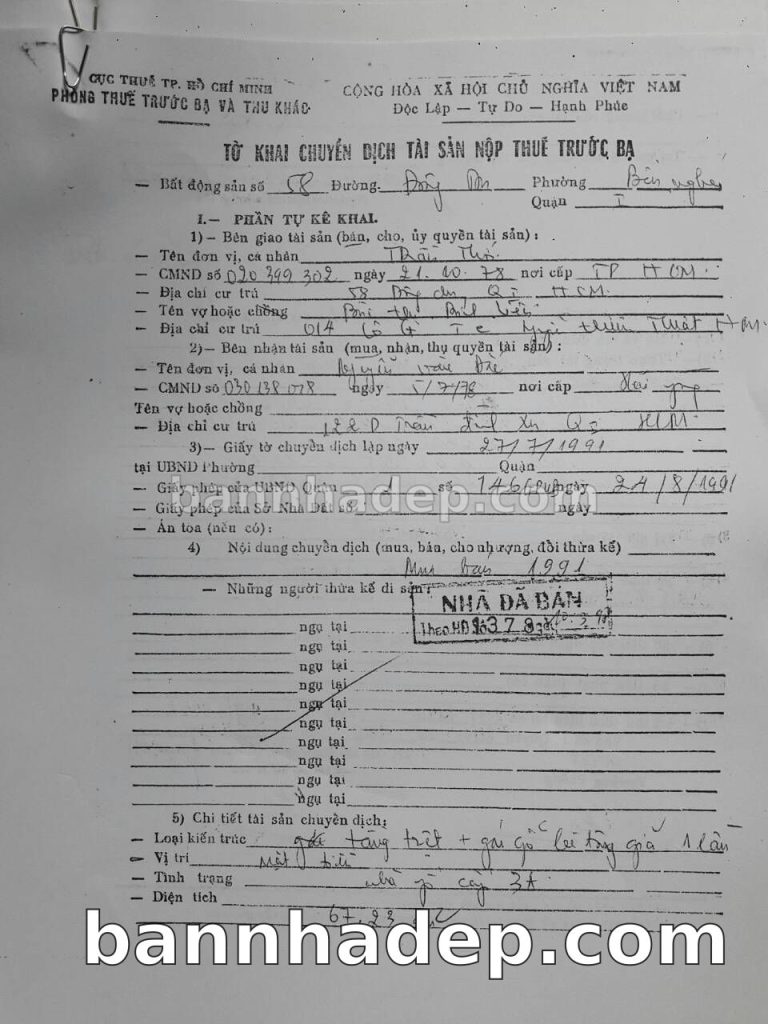 CỤC THUẾ TP. HỒ CHÍ MINH
PHÒNG THUẾ TRƯỚC BẠ VÀ THU KHÁC
CỘNG HÒA XÃ HỘI CHỦ NGHĨA VIỆT NAM
Độc Lập — Tự Do — Hạnh Phúc
TỜ KHAI CHUYỂN DỊCH TÀI SẢN NỘP THUẾ TRƯỚC BẠ
— Bất động sản số 58 Đường Đông Du Phường Bến nghé
Quận I
I.— PHẦN TỰ KÊ KHAI.
1)— Bên giao tài sản (bán, cho, ủy quyền tài sản) :
— Tên đơn vị, cá nhân Trần
— CMND số 020399302 ngày 21.10.78 nơi cấp TP HCM.
— Địa chỉ cư trú 58 Đông Du Q I HCM.
— Tên vợ hoặc chồng
— Địa chỉ cư trú 014 Lô G Nguyễn Thiện Thuật HCM.
2)— Bên nhận tài sản (mua, nhận, thụ quyền tài sản) :
— Tên đơn vị, cá nhân Nguyễn Văn
— CMND số 030138078 ngày 5/7/78 nơi cấp
Tên vợ hoặc chồng
— Địa chỉ cư trú 122D Trần Đình Xu Q I HCM.
3)— Giấy tờ chuyển dịch lập ngày 27/7/1991
tại UBND Phường Quận
— Giấy phép của UBND Quận 1 số 146 ngày 24/8/1991
bannhadep.com
— Giấy phép của Sở Nhà Đất số ngày
— Án tòa (nếu có):
4) Nội dung chuyển dịch (mua, bán, cho nhượng, đổi thừa kế)
Mua bán 1991
— Những người thừa kế di sản :
NHÀ ĐÃ BÁN
Theo HĐ số 1378
ngụ tại
ngụ tại
ngụ tại
ngụ tại
ngụ tại
ngụ tại
ngụ tại
ngụ tại
ngụ tại
ngụ tại
5) Chi tiết tài sản chuyển dịch:
— Loại kiến trúc tầng trệt + gác gỗ 1 lần
— Vị trí mặt tiền
— Tình trạng nhà cấp 3
— Diện tích
67.23 m2
bannhadep.com